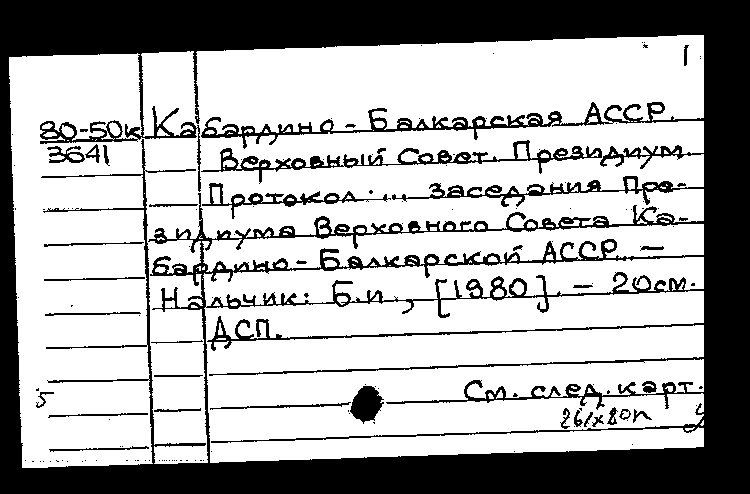 1
80-50к Кабардино-Балкарская АССР.
3641
Верховный Совет. Президиум.
Протокол ... заседания Пре-
зидиума Верховного Совета Ка-
бардино-Балкарской АССР. —
Нальчик: Б.и., [1980]. — 20см.
ДСП.
5
См. след. карт.